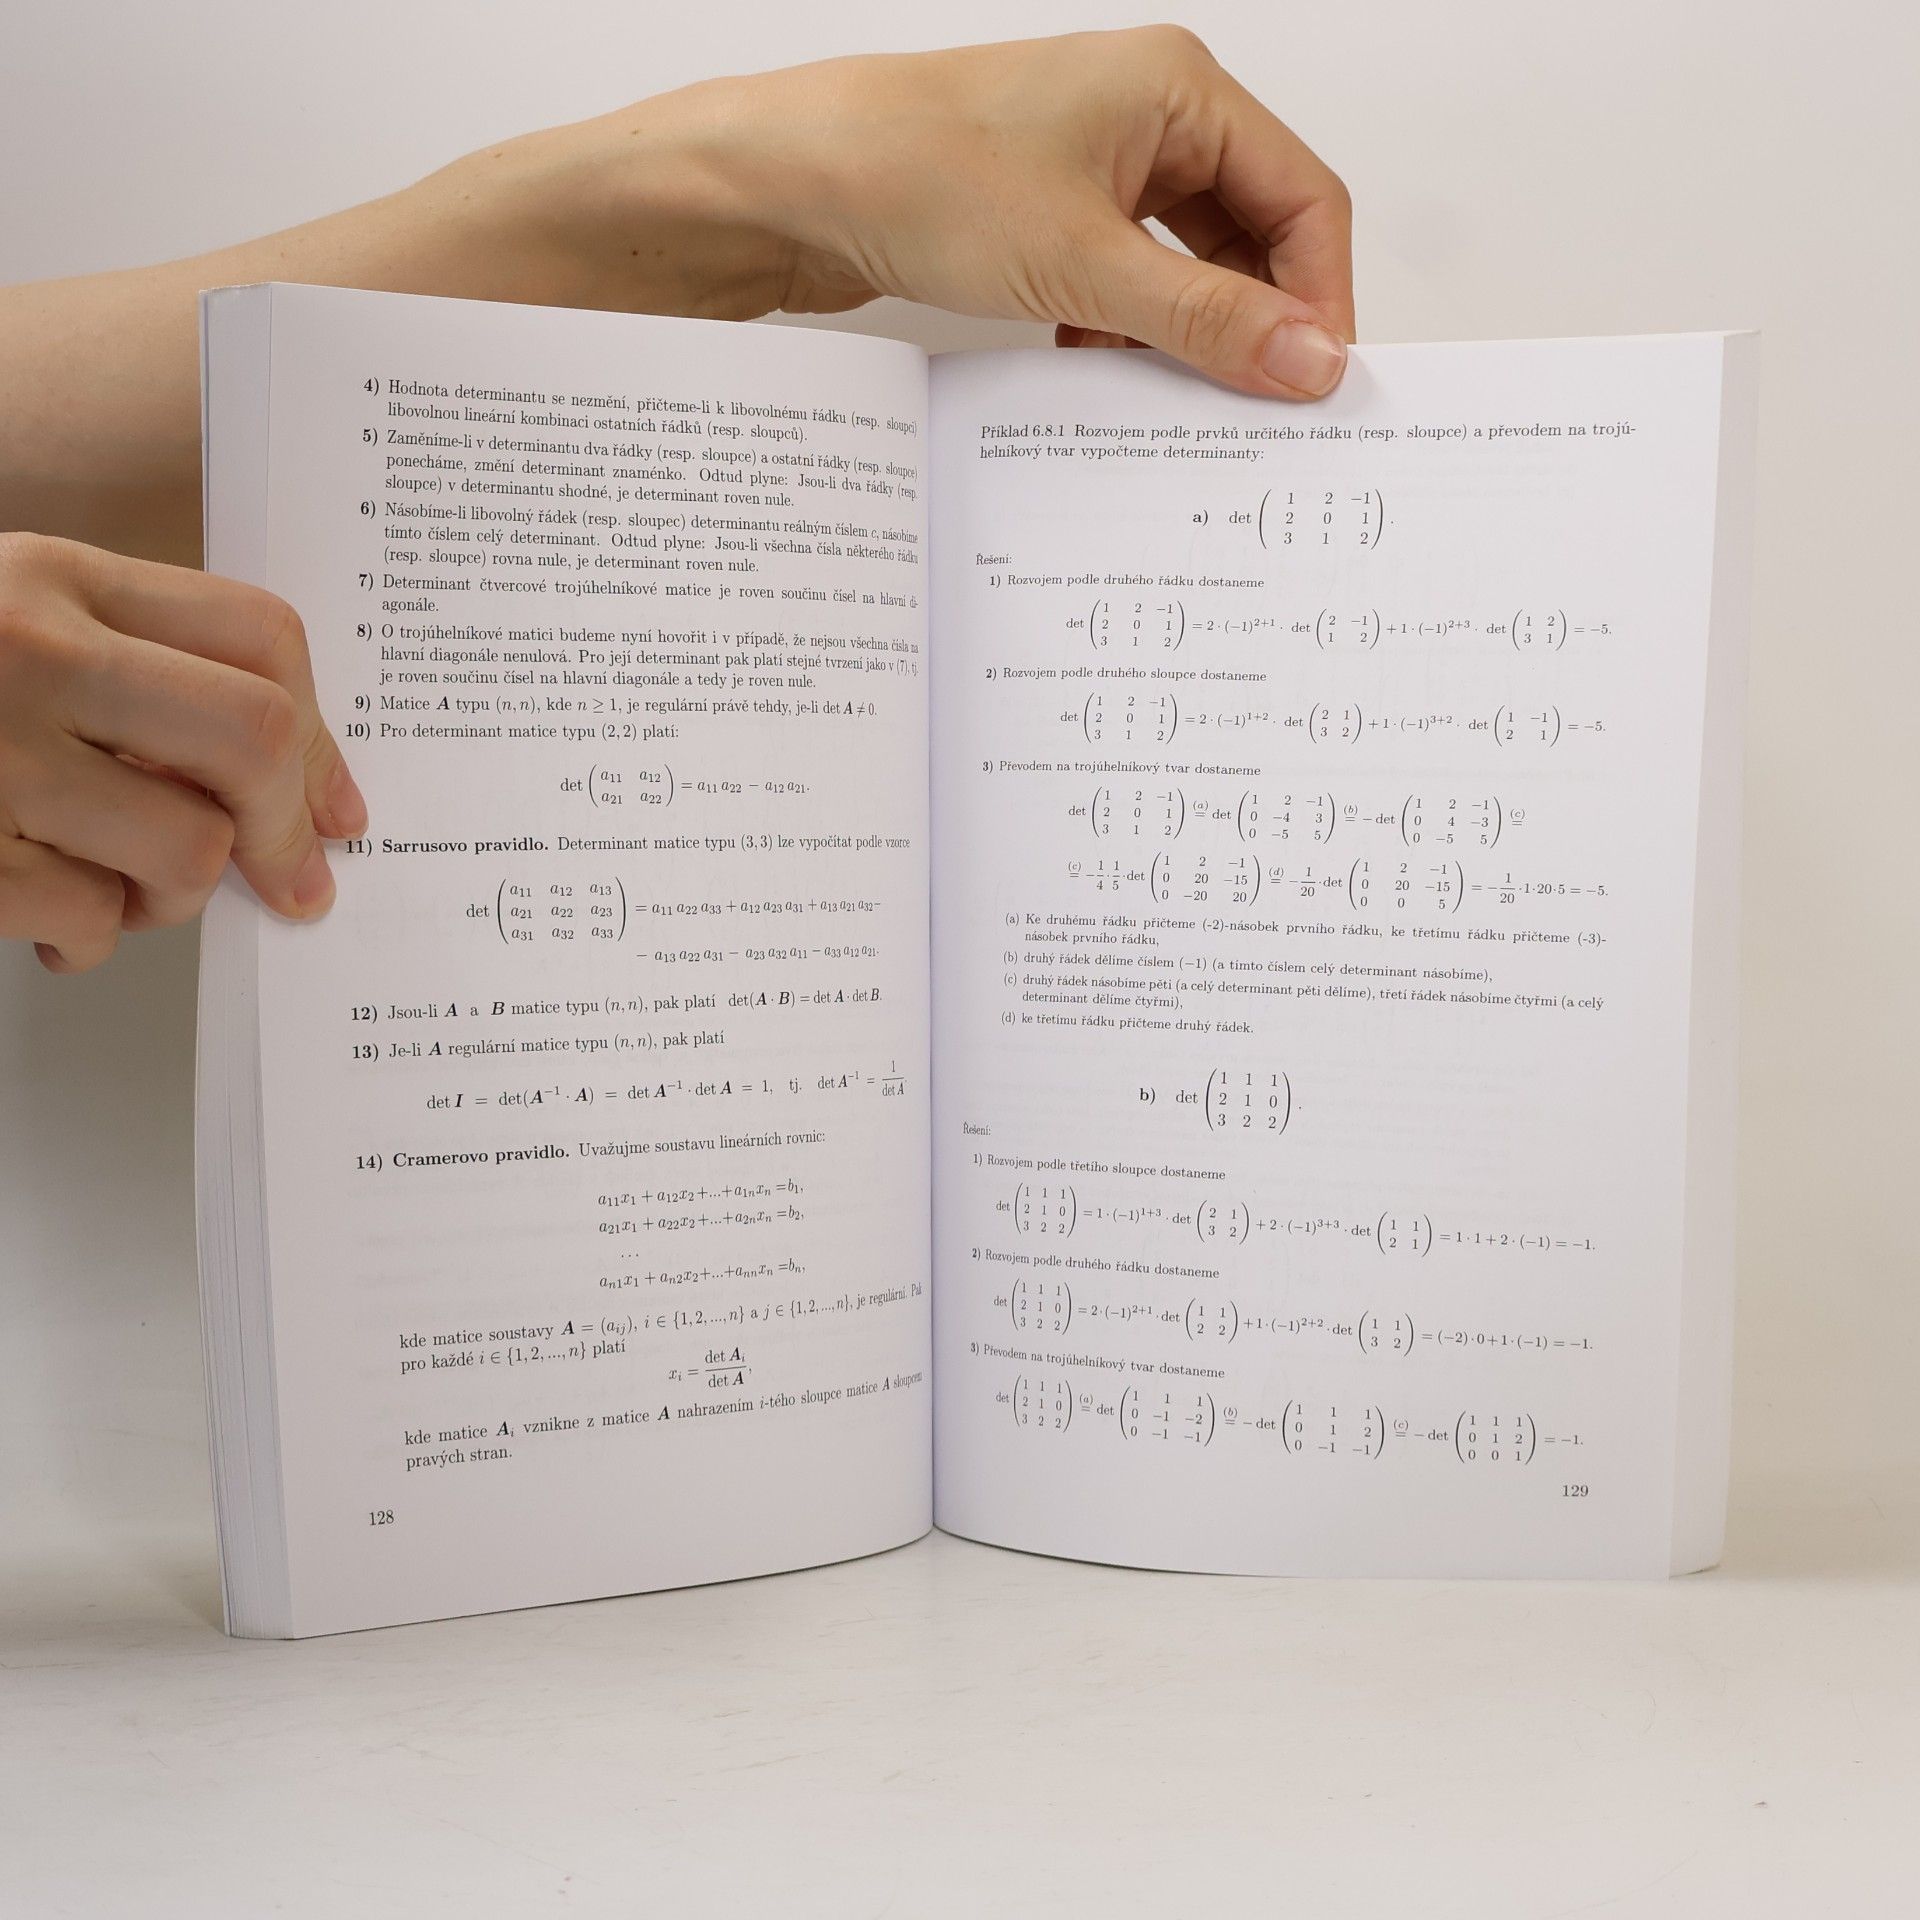 4) Hodnota determinantu se nezmění, přičteme-li k libovolnému řádku (resp. sloupci)
libovolnou lineární kombinaci ostatních řádků (resp. sloupců).
5) Zaměníme-li v determinantu dva řádky (resp. sloupce) a ostatní řádky (resp. sloupce)
ponecháme, změní determinant znaménko. Odtud plyne: Jsou-li dva řádky (resp.
sloupce) v determinantu shodné, je determinant roven nule.
6) Násobíme-li libovolný řádek (resp. sloupec) determinantu reálným číslem c, násobíme
tímto číslem celý determinant. Odtud plyne: Jsou-li všechna čísla některého řádku
(resp. sloupce) rovna nule, je determinant roven nule.
7) Determinant čtvercové trojúhelníkové matice je roven součinu čísel na hlavní di-
agonále.
8) O trojúhelníkové matici budeme nyní hovořit i v případě, že nejsou všechna čísla na
hlavní diagonále nenulová. Pro její determinant pak platí stejné tvrzení jako v (7), tj.
je roven součinu čísel na hlavní diagonále a tedy je roven nule.
9) Matice A typu (n, n), kde n ≥ 1, je regulární právě tehdy, je-li det A ≠ 0.
10) Pro determinant matice typu (2, 2) platí:
det (a11 a12
a21 a22) = a11 a22 − a12 a21.
11) Sarrusovo pravidlo. Determinant matice typu (3, 3) lze vypočítat podle vzorce
det (a11 a12 a13
a21 a22 a23
a31 a32 a33) = a11 a22 a33 + a12 a23 a31 + a13 a21 a32 −
− a13 a22 a31 − a23 a32 a11 − a33 a12 a21.
12) Jsou-li A a B matice typu (n, n), pak platí det(A · B) = det A · det B.
13) Je-li A regulární matice typu (n, n), pak platí
det I = det(A⁻¹ · A) = det A⁻¹ · det A = 1, tj. det A⁻¹ = 1/det A.
14) Cramerovo pravidlo. Uvažujme soustavu lineárních rovnic:
a11x1 + a12x2 + ... + a1nxn = b1,
a21x1 + a22x2 + ... + a2nxn = b2,
...
an1x1 + an2x2 + ... + annxn = bn,
kde matice soustavy A = (aij), i ∈ {1, 2, ..., n} a j ∈ {1, 2, ..., n}, je regulární. Pak
pro každé i ∈ {1, 2, ..., n} platí
xi = det Ai / det A,
kde matice Ai vznikne z matice A nahrazením i-tého sloupce matice A sloupcem
pravých stran.
128
Příklad 6.8.1 Rozvojem podle prvků určitého řádku (resp. sloupce) a převodem na trojú-
helníkový tvar vypočteme determinanty:
a) det (1 2 −1
2 0 1
3 1 2).
Řešení:
1) Rozvojem podle druhého řádku dostaneme
det (1 2 −1
2 0 1
3 1 2) = 2 · (−1)²⁺¹ · det (2 −1
1 2) + 1 · (−1)²⁺³ · det (1 2
3 1) = −5.
2) Rozvojem podle druhého sloupce dostaneme
det (1 2 −1
2 0 1
3 1 2) = 2 · (−1)¹⁺² · det (2 1
3 2) + 1 · (−1)³⁺² · det (1 −1
2 1) = −5.
3) Převodem na trojúhelníkový tvar dostaneme
det (1 2 −1
2 0 1
3 1 2) (a)= det (1 2 −1
0 −4 3
0 −5 5) (b)= − det (1 2 −1
0 4 −3
0 −5 5) (c)=
(c)= −1/4 · 1/5 · det (1 2 −1
0 20 −15
0 −20 20) (d)= −1/20 · det (1 2 −1
0 20 −15
0 0 5) = −1/20 · 1 · 20 · 5 = −5.
(a) Ke druhému řádku přičteme (-2)-násobek prvního řádku, ke třetímu řádku přičteme (-3)-
násobek prvního řádku,
(b) druhý řádek dělíme číslem (−1) (a tímto číslem celý determinant násobíme),
(c) druhý řádek násobíme pěti (a celý determinant pěti dělíme), třetí řádek násobíme čtyřmi (a celý
determinant dělíme čtyřmi),
(d) ke třetímu řádku přičteme druhý řádek.
b) det (1 1 1
2 1 0
3 2 2).
Řešení:
1) Rozvojem podle třetího sloupce dostaneme
det (1 1 1
2 1 0
3 2 2) = 1 · (−1)¹⁺³ · det (2 1
3 2) + 2 · (−1)³⁺³ · det (1 1
2 1) = 1 · 1 + 2 · (−1) = −1.
2) Rozvojem podle druhého řádku dostaneme
det (1 1 1
2 1 0
3 2 2) = 2 · (−1)²⁺¹ · det (1 1
2 2) + 1 · (−1)²⁺² · det (1 1
3 2) = (−2) · 0 + 1 · (−1) = −1.
3) Převodem na trojúhelníkový tvar dostaneme
det (1 1 1
2 1 0
3 2 2) (a)= det (1 1 1
0 −1 −2
0 −1 −1) (b)= − det (1 1 1
0 1 2
0 −1 −1) (c)= − det (1 1 1
0 1 2
0 0 1) = −1.
129